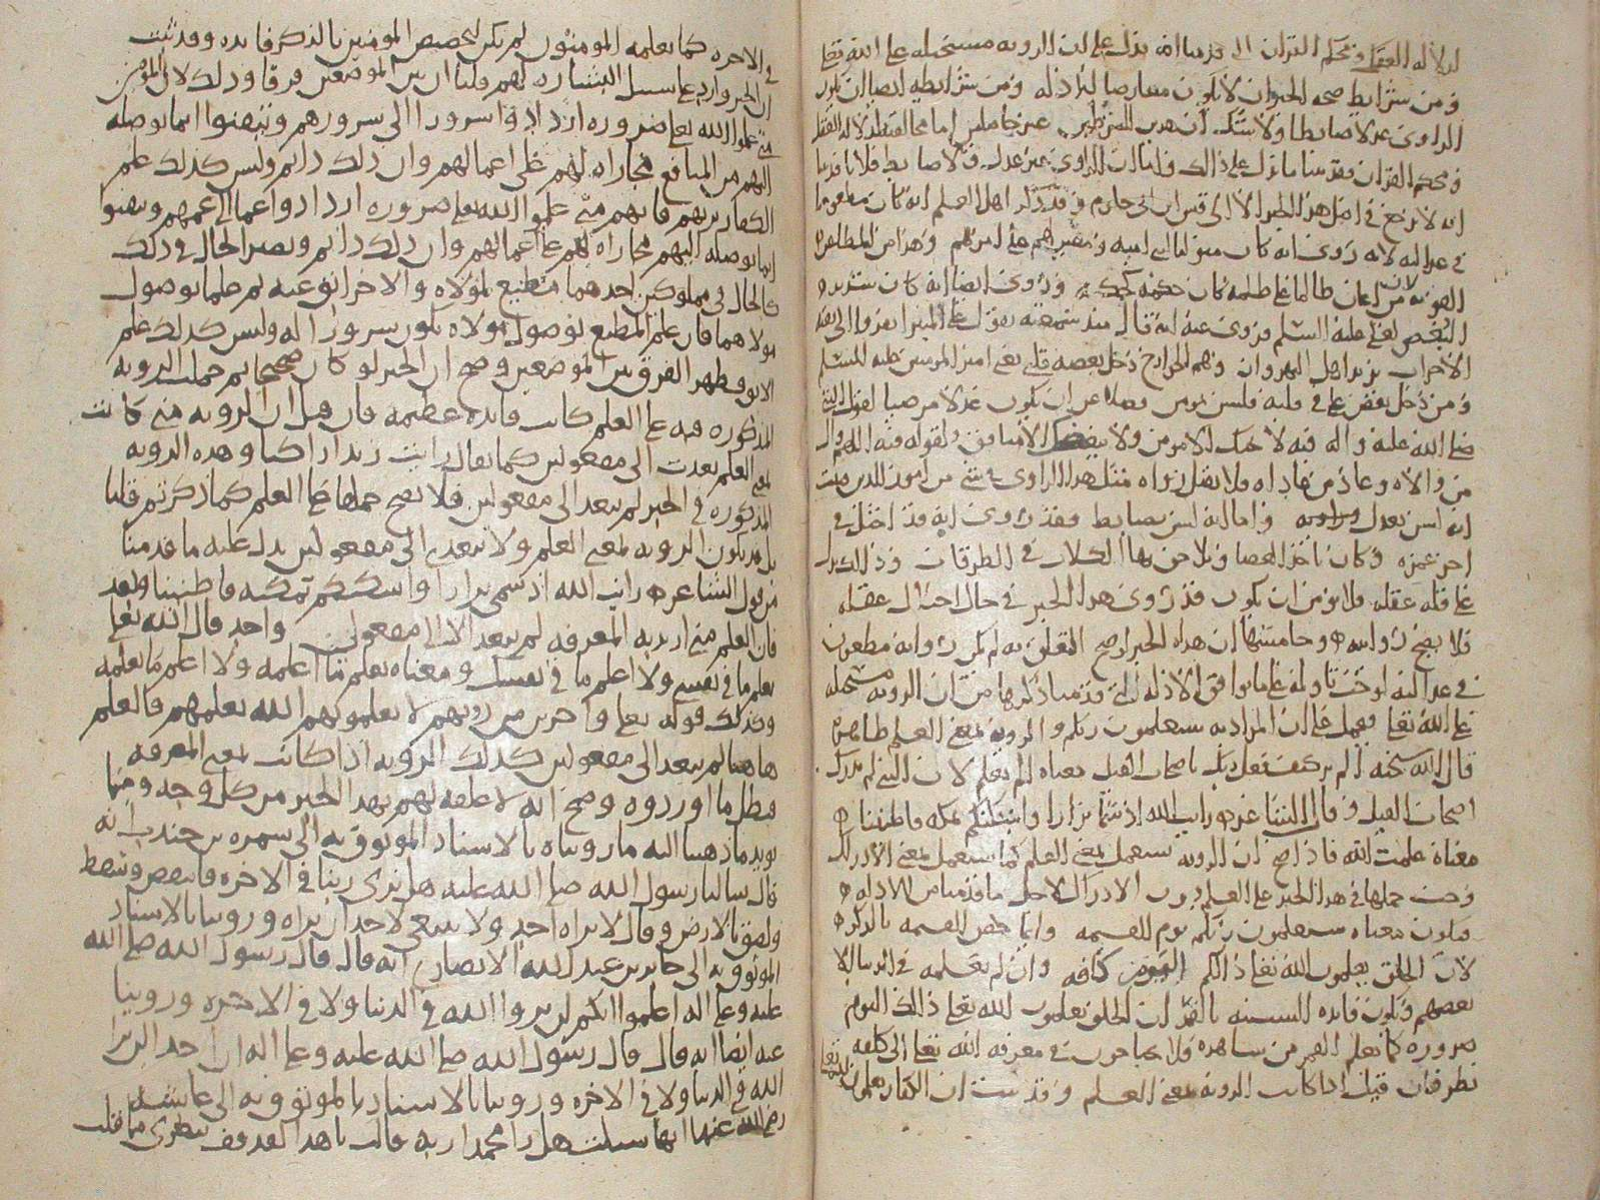 لدلالة العقل ومحكم القرآن التي قدمنا انه يدل على ان الروية مستحيلة على الله تعالى
ومن شرايط صحة الخبر ان لا يكون معارضا للادلة ومن شرايطه ايضا ان يكون
الراوي عدلا ضابطا ولا شك ان هذين الشرطين غير حاصلين اما مخالفته لدلالة العقل
ومحكم القران فقد بينا ما يدل على ذلك وقلنا ان الراوي غير عدل ولا ضابط فلانا قد بينا
انه لا يرجع في اصل هذا الخبر الا الى قيس ابن ابي حازم وقد ذكر اهل العلم انه كان مطعونا
في عدالته لانه روي انه كان متوليا لبني امية ومعينا لهم على امرهم وهذا من المظاهرة
القوية لان من اعان ظالما على ظلمه كان حكمه كحكمه وروي ايضا انه كان شديد
البغض لعلي عليه السلم وروي عنه انه قال منذ سمعته يقول على المنبر انفروا الى بقية
الاحزاب يريد اهل النهروان وهم الخوارج دخل بغضه قلبي يعني امير المومنين عليه السلم
ومن دخل بغض علي في قلبه فليس بمومن فضلا عن ان يكون عدلا مرضيا لقول النبي
صلى الله عليه واله فيه لا يحبك الا مومن ولا يبغضك الا منافق ولقوله فيه اللهم وال
من والاه وعاد من عاداه ولا يقبل رواه مثل هذا الراوي في شي من امور الدين فثبت
انه ليس بعدل واما انه ليس بضابط فقد روي انه قد اختل في
اخر عمره وكان ياخذ العصا ويلاحق بها الكلاب في الطرقات وذلك يدل
على قلة عقله فلا يومن ان يكون قد روى هذا الخبر في حال اختلال عقله
فلا يصح روايته وخامسها ان هذا الخبر لو صح التعلق به لم يكن راويه مطعون
في عدالته لوجب تاوله على ما يوافق الادلة التي قدمنا ذكرها من ان الروية مستحيلة
على الله تعالى فيحمل على ان المراد به ستعلمون ربكم والروية بمعنى العلم ظاهرة
قال الله سبحنه الم تر كيف فعل ربك باصحاب الفيل معناه الم يعلم لان النبي لم يدرك
اصحاب الفيل وقال الشاعر رايت الله اذ سمى نزارا واسكنهم بمكة قاطنينا
معناه علمت الله فاذا صح ان الروية تستعمل بمعنى العلم كما يستعمل بمعنى الادراك
وجب حملها في هذا الخبر على العلم دون الادراك لاجل ما قدمناه من الادلة
فيكون معناه ستعلمون ربكم يوم القيمة وانما خص القيمة بالذكر
لان الخلق يعلمون الله تعالى ذلك اليوم كافة وان لم يعلمه في الدنيا الا
بعضهم ويكون فايدة التشبيه بالقمر ان الخلق يعلمون الله تعالى ذلك اليوم
ضرورة كما يعلم القمر من شاهده فلا يحتاجون في معرفة الله تعالى الى كلفة
نظر فان قيل اذا كانت الروية بمعنى العلم وقد ثبت ان الكفار يعلمون الله تعالى
في الاخره كما يعلمه المومنون لم يكن لتخصيص المومنين بالذكر فايده وقد ثبت
ان الخبر وارد على سبيل البشارة لهم قلنا ان بين الموضعين فرقا وذلك لان المومنين
متى علموا الله تعالى ضرورة ازدادوا سرورا الى سرورهم وتيقنوا انما يوصله
اليهم من المنافع مجازاة لهم على اعمالهم وان ذلك دايم وليس كذلك علم
الكفار بربهم فانهم متى علموا الله تعالى ضرورة ازدادوا غما الى غمهم وتيقنوا
انما يوصله اليهم مجازاة لهم على اعمالهم وان ذلك دايم ويصير الحال في ذلك
كالحال في مملوكين احدهما مطيع لمولاه والاخر ابق عنه ثم علما بوصول
مولاهما فان علم المطيع بوصول مولاه يكون سرورا له وليس كذلك علم
الابق فظهر الفرق بين الموضعين وصح ان الخبر لو كان صحيحا ثم حملت الروية
المذكورة فيه على العلم كانت فايدة عظيمة فان قيل ان الروية متى كانت
بمعنى العلم تعدت الى مفعولين كما يقال رايت زيدا راكبا وهذه الروية
المذكورة في الخبر لم يتعد الى مفعولين فلا يصح حملها على العلم كما ذكرتم قلنا
بل قد يكون الروية بمعنى العلم ولا تتعدى الى مفعولين يدل عليه ما قدمنا
من قول الشاعر رايت الله اذ سمى نزارا واسكنهم بمكة قاطنينا وبعد
فان العلم متى اريد به المعرفة لم يتعد الا الى مفعول واحد قال الله تعالى
تعلم ما في نفسي ولا اعلم ما في نفسك ومعناه تعلم ما اعلمه ولا اعلم ما تعلمه
وكذلك قوله تعالى واخرين من دونهم لا تعلمونهم الله يعلمهم فالعلم
هاهنا لم يتعد الى مفعولين كذلك الروية اذا كانت بمعنى المعرفة
فبطل ما اوردوه وصح انه لا علقة لهم بهذا الخبر من كل وجه ومما
يويد ما ذهبنا اليه ما رويناه بالاسناد الموثوق به الى سمرة بن جندب انه
قال سالنا رسول الله صلى الله عليه هل نرى ربنا في الاخرة فانتفض وسقط
ولصق بالارض وقال لا يراه احد ولا ينبغي لاحد ان يراه وروينا بالاسناد
الموثوق به الى جابر بن عبد الله الانصاري انه قال قال رسول الله صلى الله
عليه وعلى اله اعلموا انكم لن تروا الله في الدنيا ولا في الاخرة وروينا
عنه ايضا انه قال قال رسول الله صلى الله عليه وعلى اله ان احدا لن يرا
الله في الدنيا ولا في الاخره وروينا بالاسناد الموثوق به الى عايشة
رضي الله عنها انها سيلت هل را محمد ربه فقالت يا هذا لقد قف شعري مما قلت